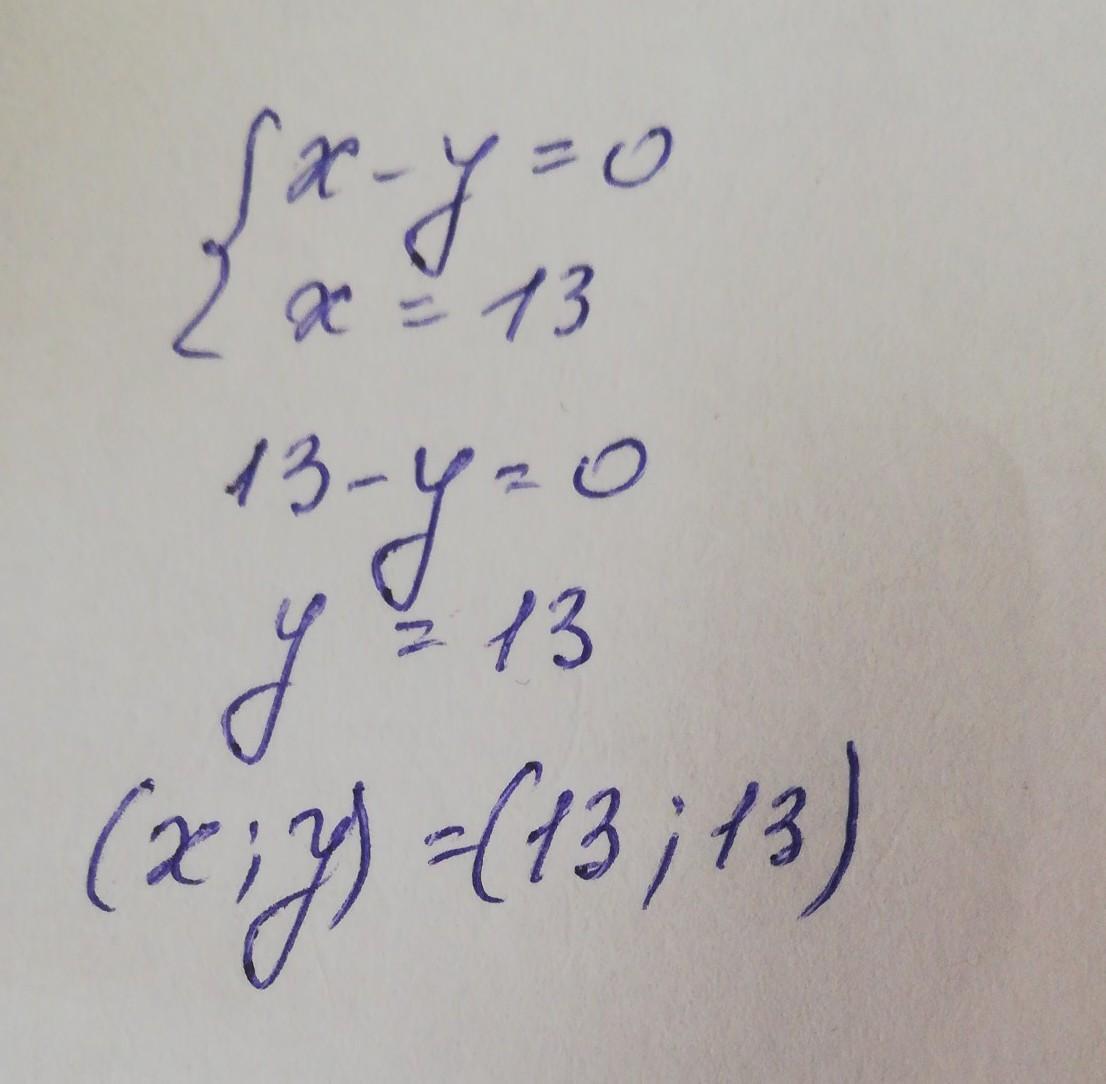 { x - y = 0
x = 13
13 - y = 0
y = 13
(x; y) = (13; 13)